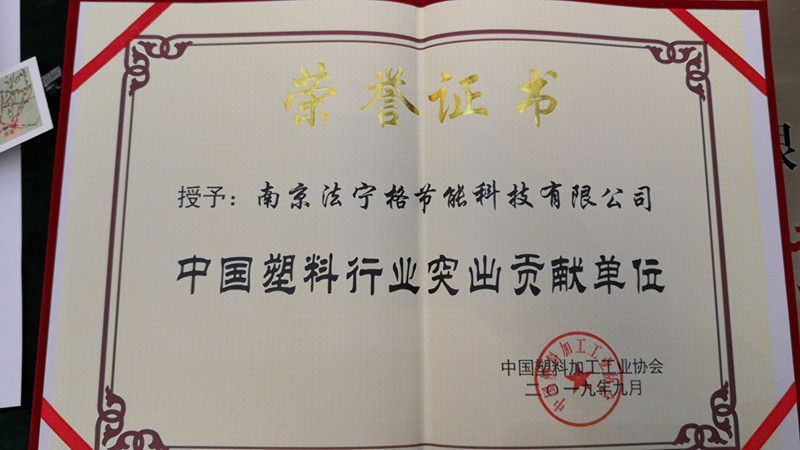 荣誉证书
授予：南京法宁格节能科技有限公司
中国塑料行业突出贡献单位
中国塑料加工工业协会
二〇一九年九月